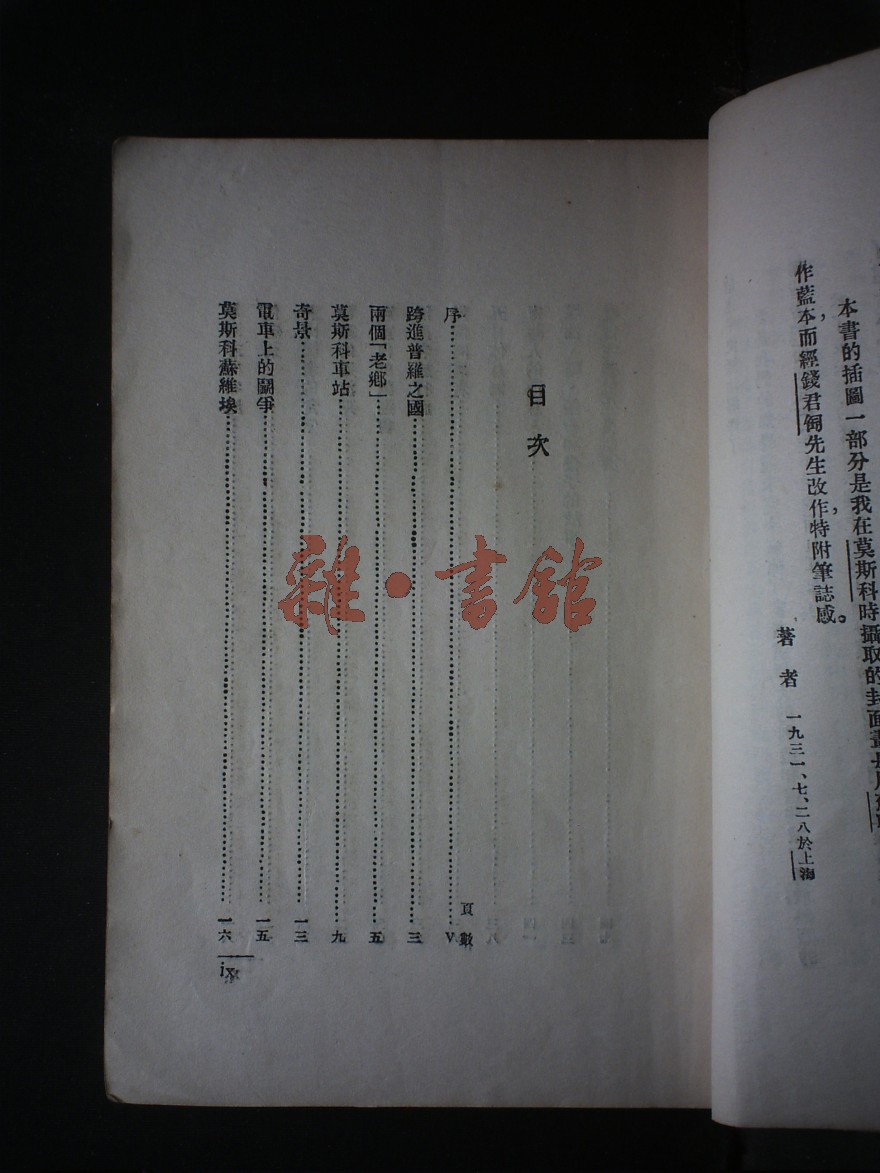 本書的插圖一部分是我在莫斯科時攝取的封面畫
作藍本，而經錢君匋先生改作，特附筆誌感。
著者 一九三一、七、二八於上海
目次
頁數
序 V
跨進普羅之國 三
兩個「老鄉」 五
莫斯科車站 九
奇景 一三
電車上的鬭爭 一五
莫斯科蘇維埃 一六
ix
雜·書館